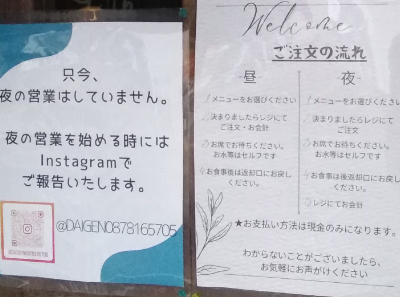 只今、
夜の営業はしていません。
夜の営業を始める時には
Instagramで
ご報告いたします。
@DAIGEN0878165705
Welcome
ご注文の流れ
-昼-
1 メニューをお選びください
2 決まりましたらレジにて
ご注文・お会計
3 お席でお待ちください。
お水等はセルフです
4 お食事後は返却口にお戻し
ください。
-夜-
1 メニューをお選びください
2 決まりましたらレジにて
ご注文
3 お席でお待ちください。
お水等はセルフです
4 お食事は後返却口にお戻し
ください。
5 レジにてお会計
★お支払い方法は現金のみになります。
わからないことがございましたら、
お気軽にお声がけください